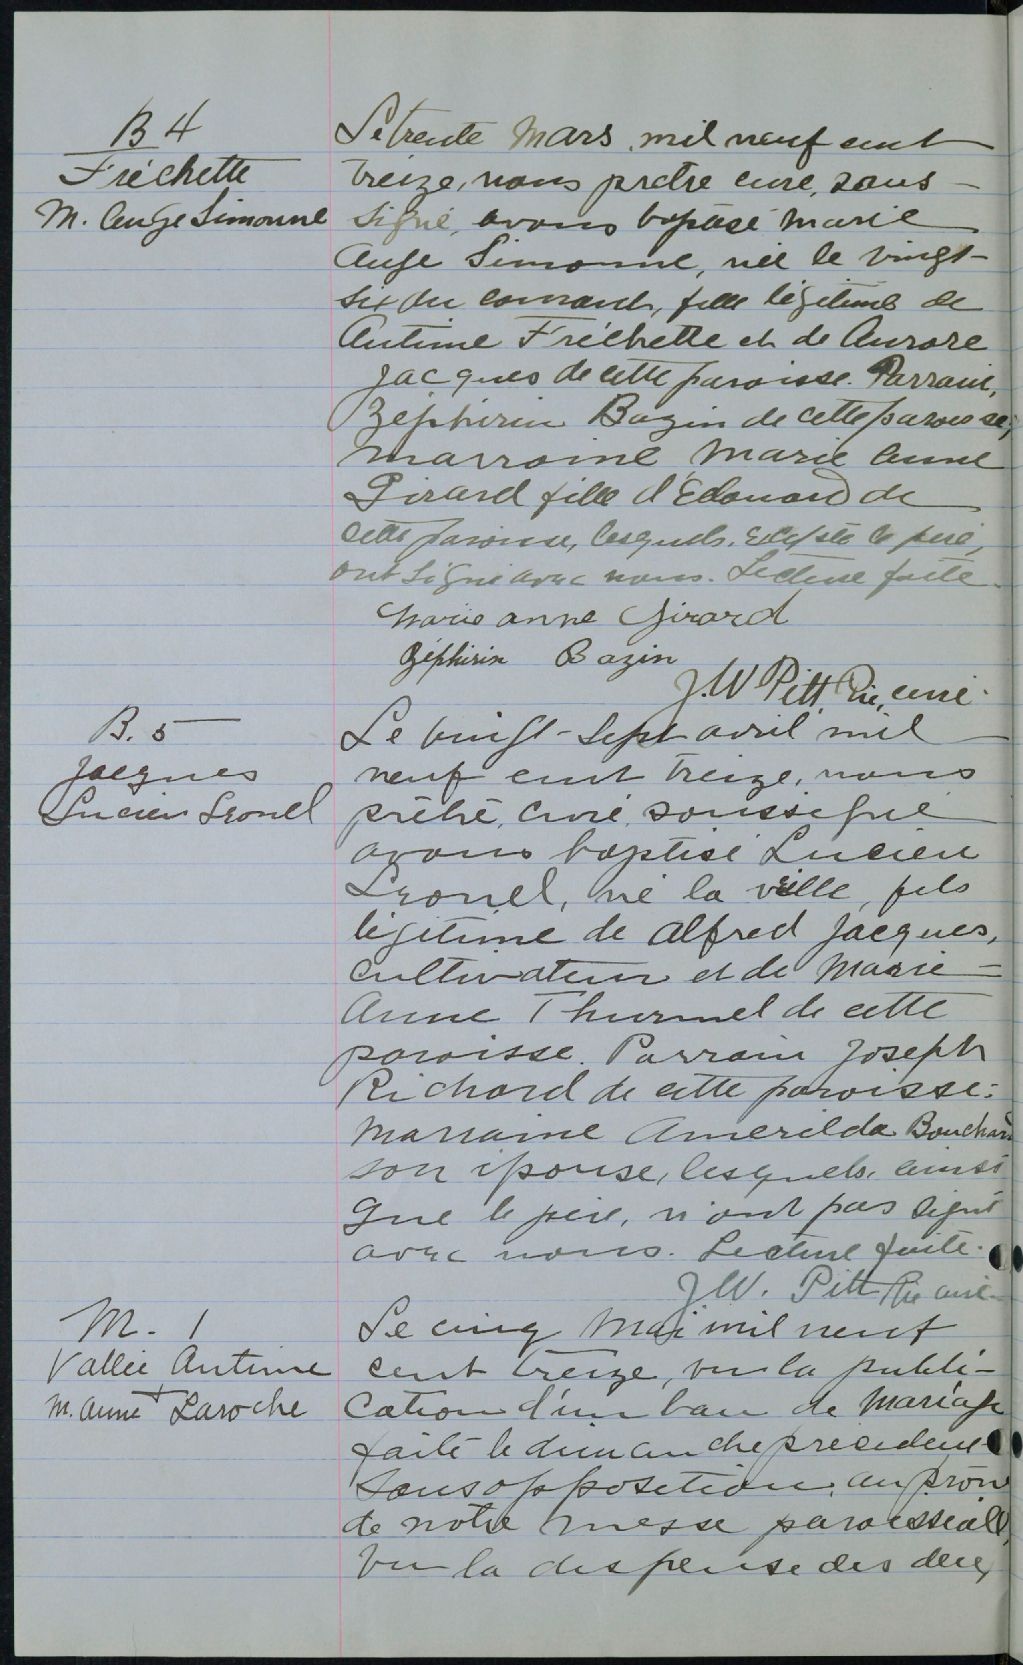 B 4
Fréchette
M. Ange Simonne
Le trente Mars mil neuf cent
treize, nous prêtre curé, sous-
signé, avons baptisé Marie
Ange Simonne, née le vingt-
six du courant, fille légitime de
Antime Fréchette et de Aurore
Jacques de cette paroisse. Parrain,
Zéphirin Bazin de cette paroisse;
marraine Marie Anne
Girard fille d'Edouard de
cette paroisse, lesquels, excepté le père,
ont signé avec nous. Lecture faite.
Marie anne Girard
Zéphirin Bazin
J. W Pitt, Ptre, curé.
B. 5
Jacques
Lucien Leonel
Le vingt-sept avril mil
neuf cent treize, nous
prêtre, curé, soussigné
avons baptisé Lucien
Leonel, né la veille, fils
légitime de Alfred Jacques,
cultivateur et de Marie-
Anne Thurmel de cette
paroisse. Parrain Joseph
Richard de cette paroisse;
Marraine Amerilda Bouchard
son épouse, lesquels, ainsi
que le père, n'ont pas signé
avec nous. Lecture faite.
J. W. Pitt Ptre curé
M. 1
Vallée Antime
+
M. Anne Laroche
Le cinq Mai mil neuf
cent treize, vu la publi-
cation d'un ban de Mariage
faite le dimanche precedent
sans opposition, au prône
de notre messe paroissiale,
vu la dispense des deux